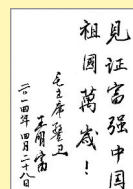 见证富强中国
祖國萬歲！
毛主席警卫
王明富
二〇一四年四月二十八日